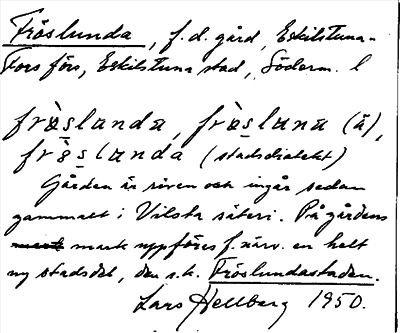 Fröslunda, f.d. gård, Eskilstuna-
Fors förs, Eskilstuna stad, Söderm. l
frö̀slanda, frö̀slȧna (ä),
frö̀slanda (stadsdialekt)
Gården är riven och ingår sedan
gammalt i Vilsta säteri. På gårdens
mark uppföres f. närv. en helt
ny stadsdel, den s.k. Fröslundastaden.
Lars Hellberg 1950.